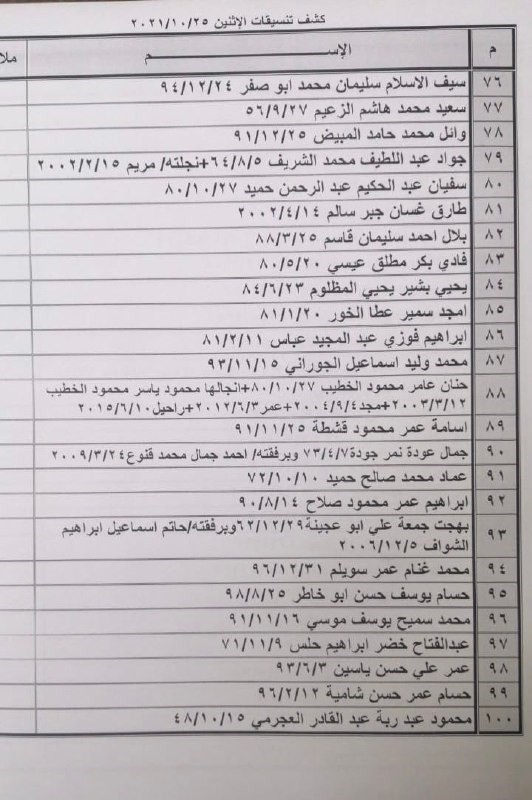 كشف تنسيقات الإثنين ٢٠٢١/١٠/٢٥
م الإســــــــم ملا
٧٦ سيف الاسلام سليمان محمد ابو صفر ٩٤/١٢/٢٤
٧٧ سعيد محمد هاشم الزعيم ٥٦/٩/٢٧
٧٨ وائل محمد حامد المبيض ٩١/١٢/٢٥
٧٩ جواد عبد اللطيف محمد الشريف ٦٤/٨/٥+نجلته/ مريم ٢٠٠٢/٢/١٥
٨٠ سفيان عبد الحكيم عبد الرحمن حميد ٨٠/١٠/٢٧
٨١ طارق غسان جبر سالم ٢٠٠٢/٤/١٤
٨٢ بلال احمد سليمان قاسم ٨٨/٣/٢٥
٨٣ فادي بكر مطلق عيسي ٨٠/٥/٢٠
٨٤ يحيي بشير يحيي المظلوم ٨٤/٦/٢٣
٨٥ امجد سمير عطا الخور ٨١/١/٢٠
٨٦ ابراهيم فوزي عبد المجيد عباس ٨١/٢/١١
٨٧ محمد وليد اسماعيل الجوراني ٩٣/١١/١٥
٨٨ حنان عامر محمود الخطيب ٨٠/١٠/٢٧+انجالها محمود ياسر محمود الخطيب
٢٠٠٣/٣/١٢+مجد٢٠٠٤/٩/٤+عمر٢٠١٢/٦/٣+راحيل٢٠١٥/٦/١٠
٨٩ اسامة عمر محمود قشطة ٩١/١١/٢٥
٩٠ جمال عودة نمر جودة٧٣/٤/٧ وبرفقته/ احمد جمال محمد قنوع٢٠٠٩/٣/٢٤
٩١ عماد محمد صالح حميد ٧٢/١٠/١٠
٩٢ ابراهيم عمر محمود صلاح ٩٠/٨/١٤
٩٣ بهجت جمعة علي ابو عجينة٦٢/١٢/٢٩وبرفقته/حاتم اسماعيل ابراهيم
الشواف ٢٠٠٦/١٢/٥
٩٤ محمد غنام عمر سويلم ٩٦/١٢/٣١
٩٥ حسام يوسف حسن ابو خاطر ٩٨/٨/٢٥
٩٦ محمد سميح يوسف موسي ٩١/١١/١٦
٩٧ عبدالفتاح خضر ابراهيم حلس ٧١/١١/٩
٩٨ عمر علي حسن ياسين ٩٣/٦/٣
٩٩ حسام عمر حسن شامية ٩٦/٢/١٢
١٠٠ محمود عبد ربة عبد القادر العجرمي ٤٨/١٠/١٥